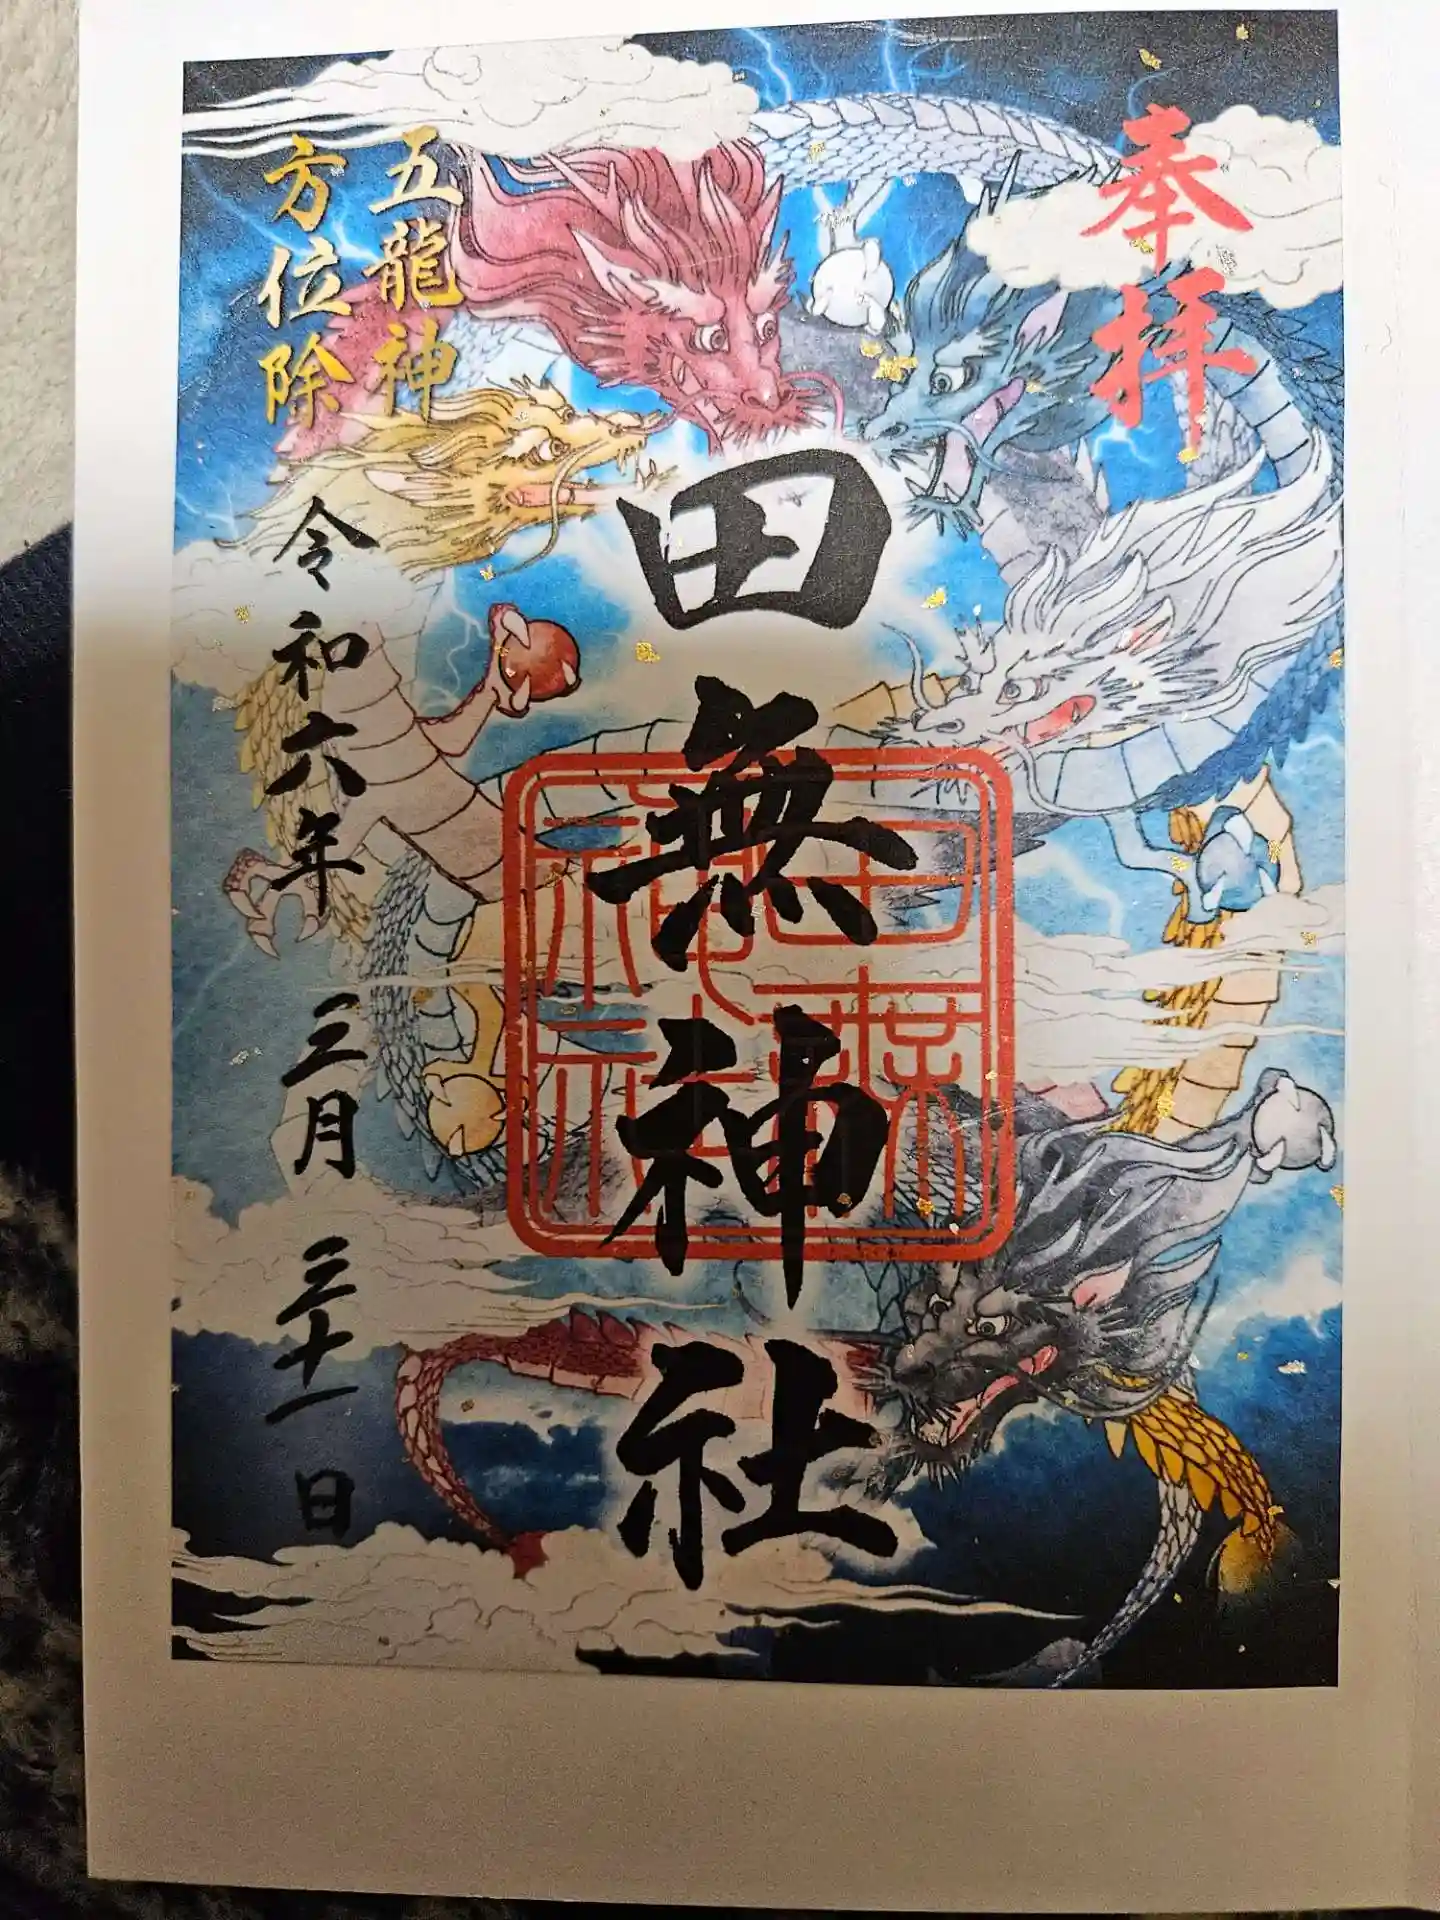 奉拝
田無神社
田無神社
五龍神
方位除
令和六年 三月 三十一日